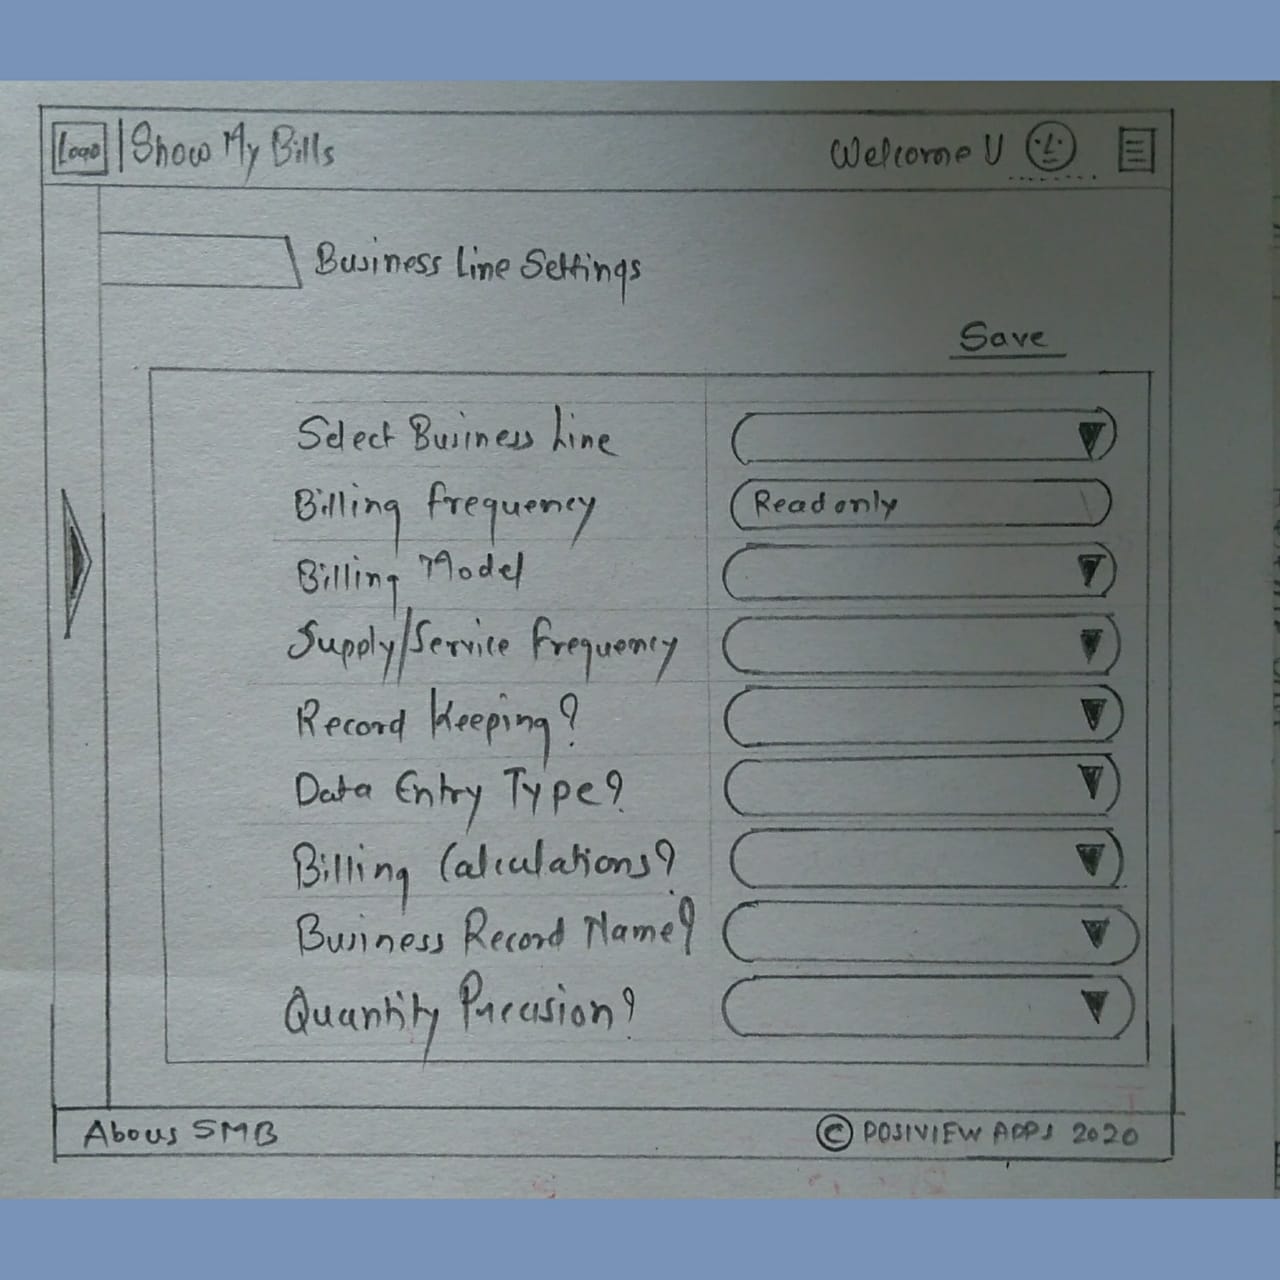 Logo | Show My Bills
Welcome U
Business Line Settings
Save
Select Business Line
Billing Frequency
Read only
Billing Model
Supply/Service Frequency
Record Keeping?
Data Entry Type?
Billing Calculations?
Business Record Name?
Quantity Precision?
About SMB
© POSIVIEW APPS 2020